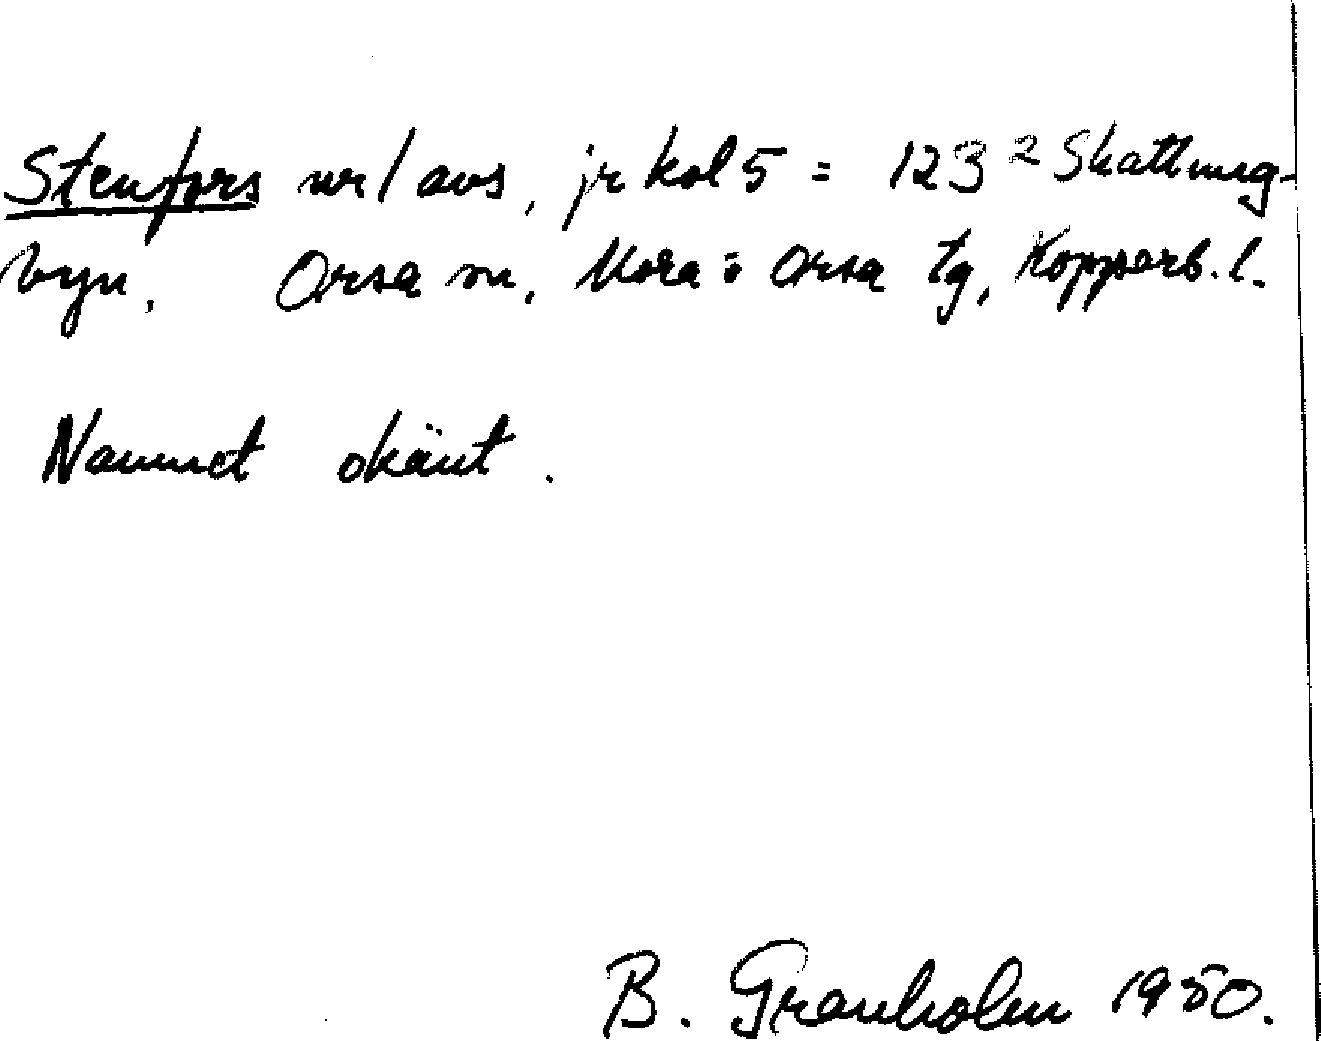 Stenfors nr 1 avs, jr kol 5 = 123² Skattung-
byn. Orsa sn, Mora o Orsa tg, Kopparb. l.
Namnet okänt.
B. Granholm 1950.